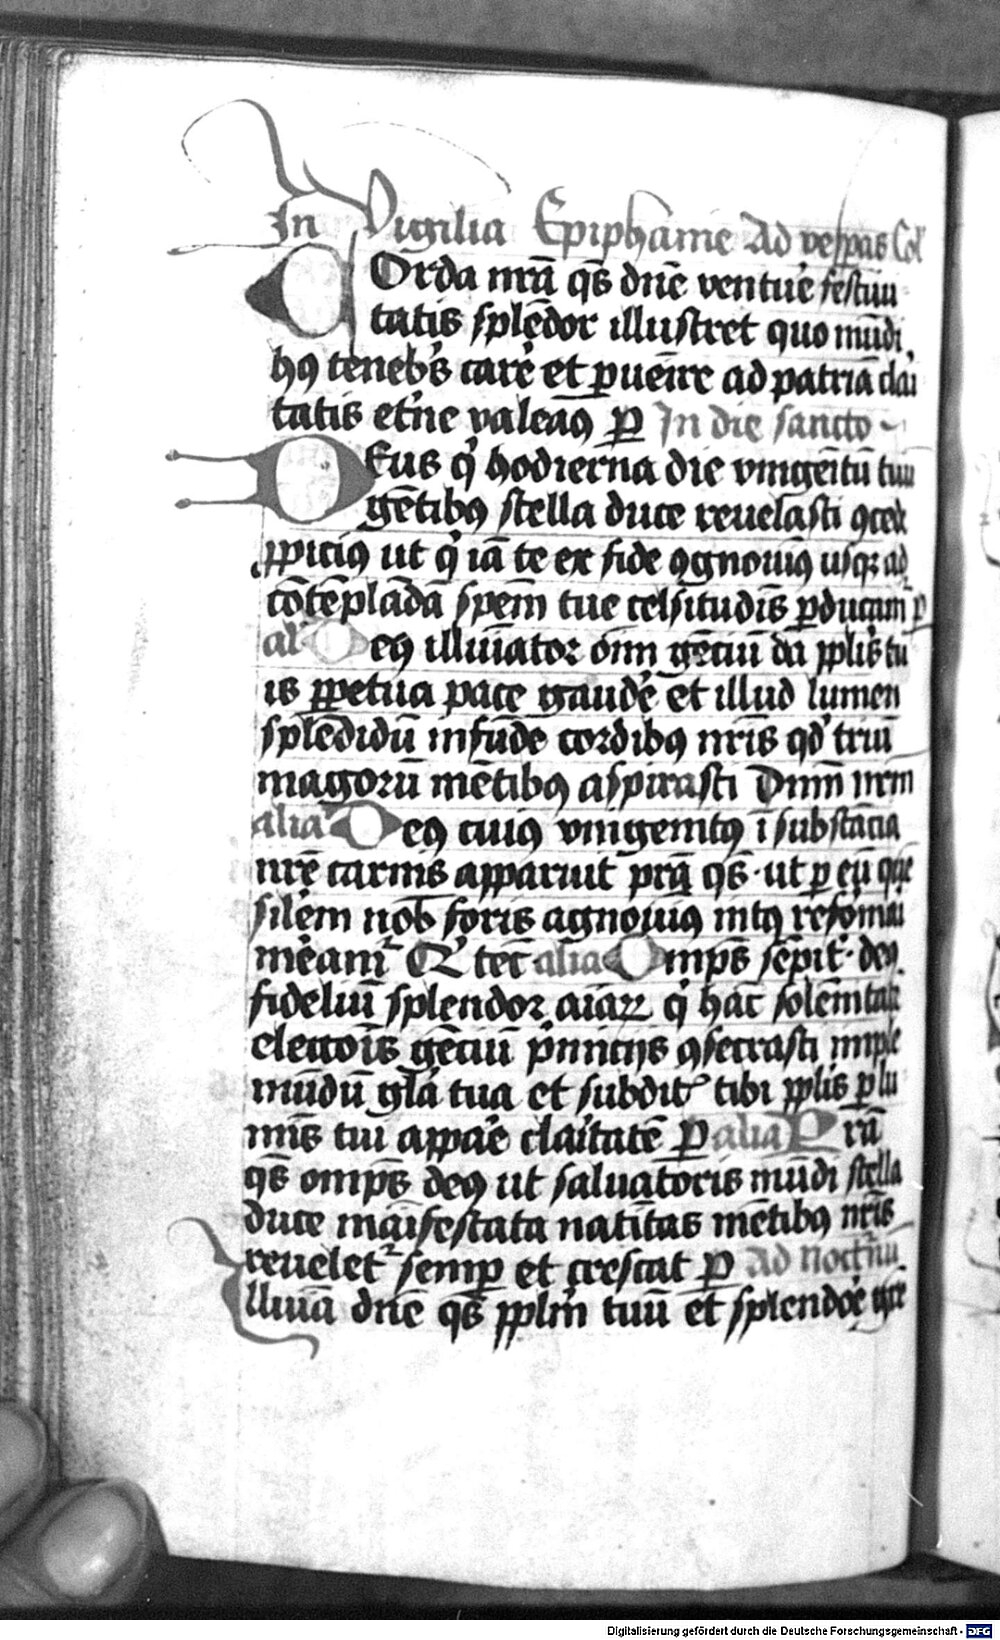 In Vigilia Epiphanie Ad vesp̄as Col̓
COrda nr̄a qs̄ dn̄e venture festiui
tatis splēdor illustret quo mūdi
hꝯ teneb̓s carēe et ꝑuenīre ad patriā clai
tatis et̓ne valeaꝯ ꝑ In die sancto
DEus q̓ hodierna die vnigeītū tuū
gētibꝯ stella duce reuelasti ꝯcede
ꝓpiciꝯ ut q̓ iā te ex fide ꝯgnouiꝯ usqꝫ ad
cōtēplādā spem̄ tue celsitudīs ꝑducam̄ ꝑ
al̓ Deꝯ illuīator om̄ gēciū da pp̄lis tu
is ꝑpetua pace gaudēe et illud lumen
splēdidū infūde cordibꝯ nr̄is qd̓ triū
magorū mētibꝯ aspirasti Dnm̄ nrm̄
alia Deꝯ cuiꝯ vnigenitꝯ ī substācia
nrē carnis apparuit pr̄a qs̄ · ut ꝑ eū quē
silēm nob̄ foris agnouiꝯ intꝯ refor̓mai
mēam̄ Q̓ tec̄ alia Omp̄s sēpit̓ · deꝯ
fideliū splendor aīaꝝ q̓ hāc solēmtatē
elecc̄ois gēciū pͥmicijs ꝯsecrasti imple
mūdū gl̄a tua et subdit̓ tibi pp̄lis ꝑ lu
mīs tui appāe clāitatē ꝑ alia Prā
qs̄ omp̄s deꝯ ut saluatoris mūdi stella
duce māifestata natiītas mētibꝯ nr̄is
reuelet̓ semꝑ et crescat ꝑ Ad Noct̓nū
Illuīa dn̄e qs̄ pp̄lm̄ tuū et splendoē gr̄e
Digitalisierung gefördert durch die Deutsche Forschungsgemeinschaft - DFG